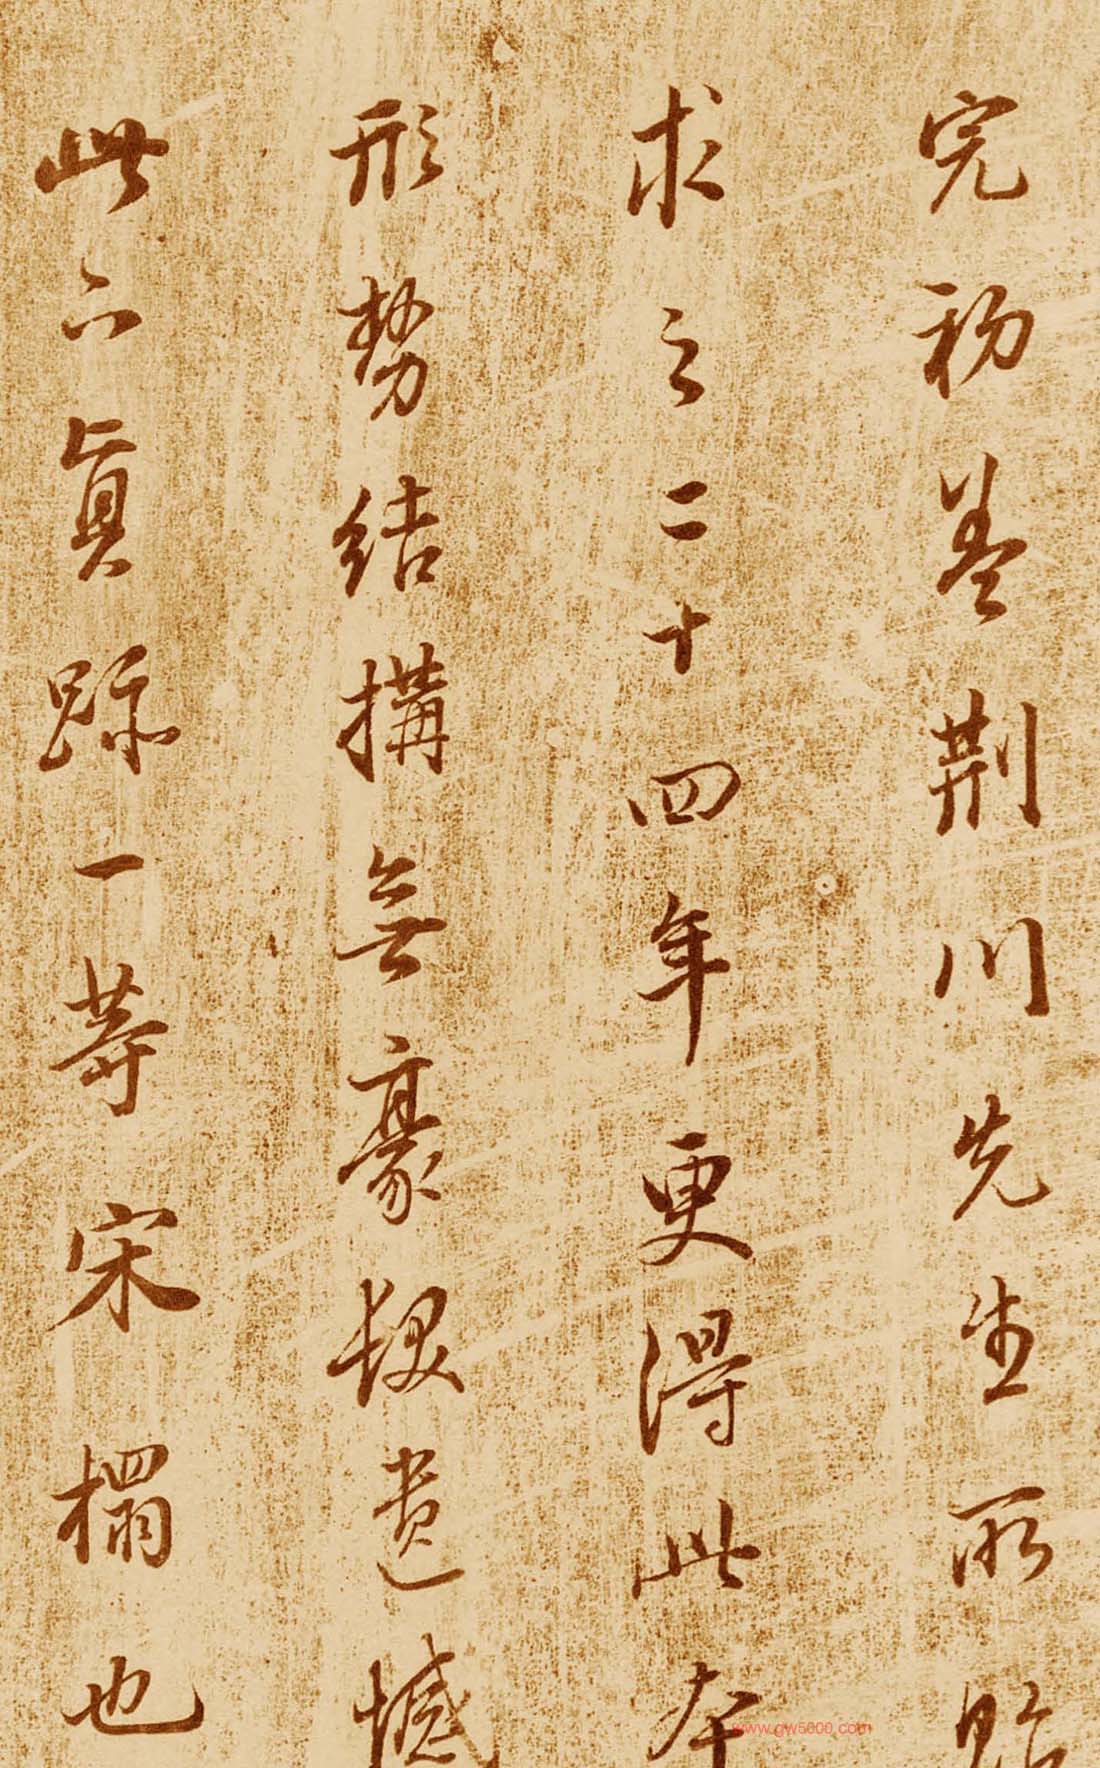 完初葢荆川先生所貽
求之二十四年更得此本
形勢結搆無豪髮遺憾
此下真跡一等宋榻也
www.gw5000.com